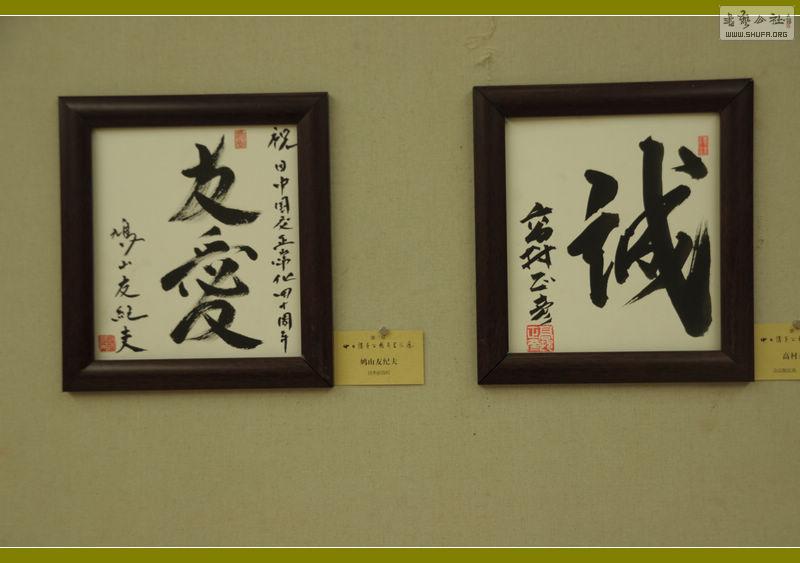 書藝公社
WWW.SHUFA.ORG
祝日中国交正常化四十周年
友愛
鳩山友紀夫
鸠山友纪夫
誠
高村正彦
高村